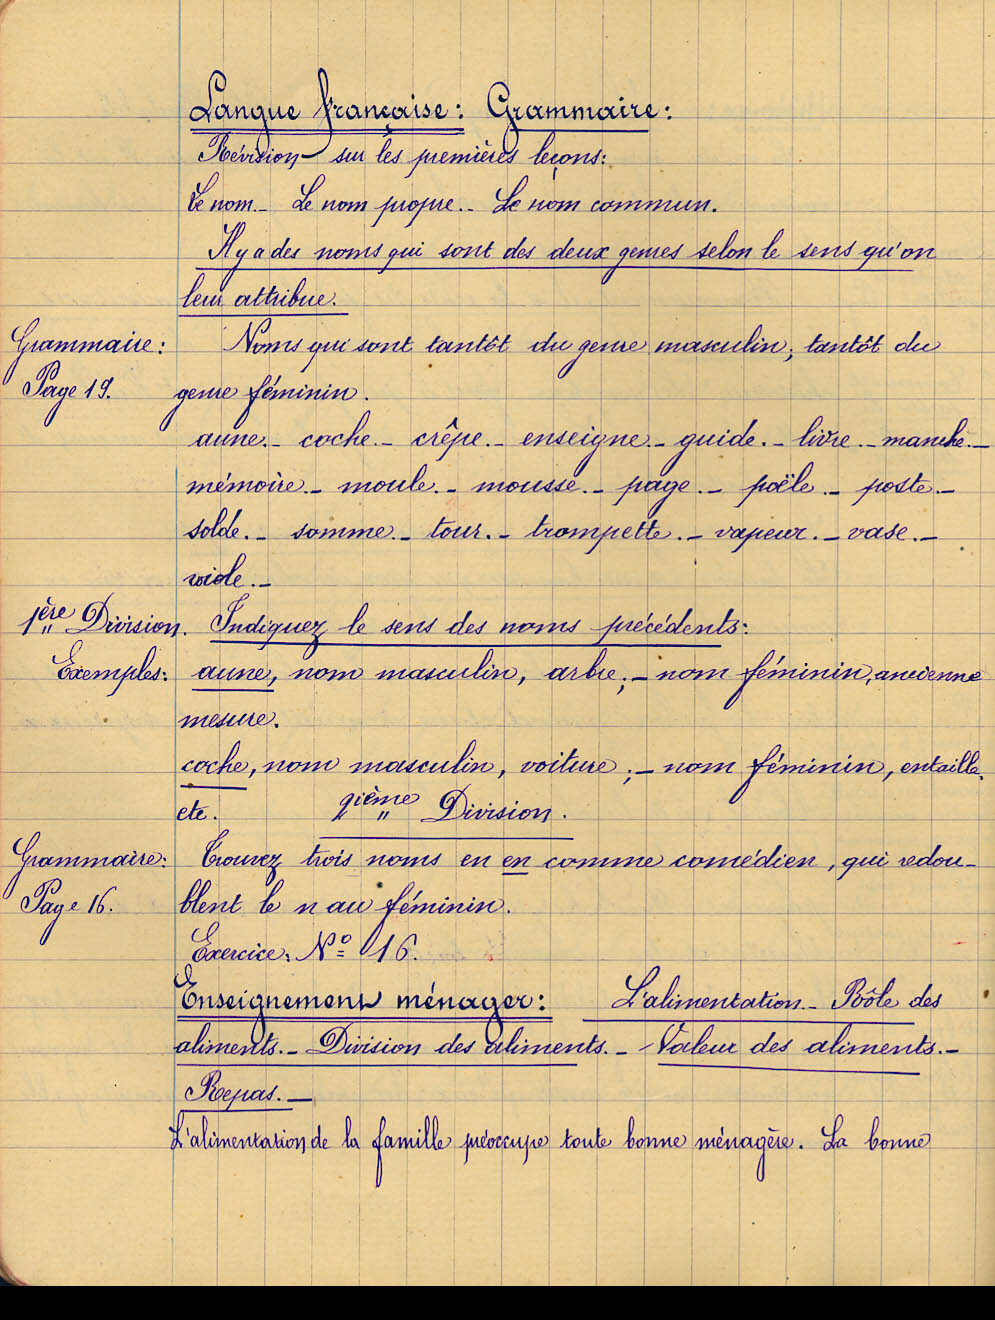 Langue française : Grammaire :
Révision sur les premières leçons :
Le nom.- Le nom propre.- Le nom commun.
Il y a des noms qui sont des deux genres selon le sens qu'on
leur attribue.
Grammaire : Noms qui sont tantôt du genre masculin, tantôt du
Page 19. genre féminin.
aune.- coche.- crêpe.- enseigne.- guide.- livre.- manche.-
mémoire.- moule.- mousse.- page.- poële.- poste.-
solde.- somme.- tour.- trompette.- vapeur.- vase.-
voile.-
1ère Division. Indiquez le sens des noms précédents :
Exemples : aune, nom masculin, arbre ;- nom féminin, ancienne
mesure.
coche, nom masculin, voiture ;- nom féminin, entaille,
etc. 2ième Division.
Grammaire : Trouvez trois noms en en comme comédien, qui redou-
Page 16. blent le n au féminin.
Exercice : No 16.
Enseignement ménager : L'alimentation.- Rôle des
aliments.- Division des aliments.- Valeur des aliments.-
Repas.-
L'alimentation de la famille préoccupe toute bonne ménagère. La bonne